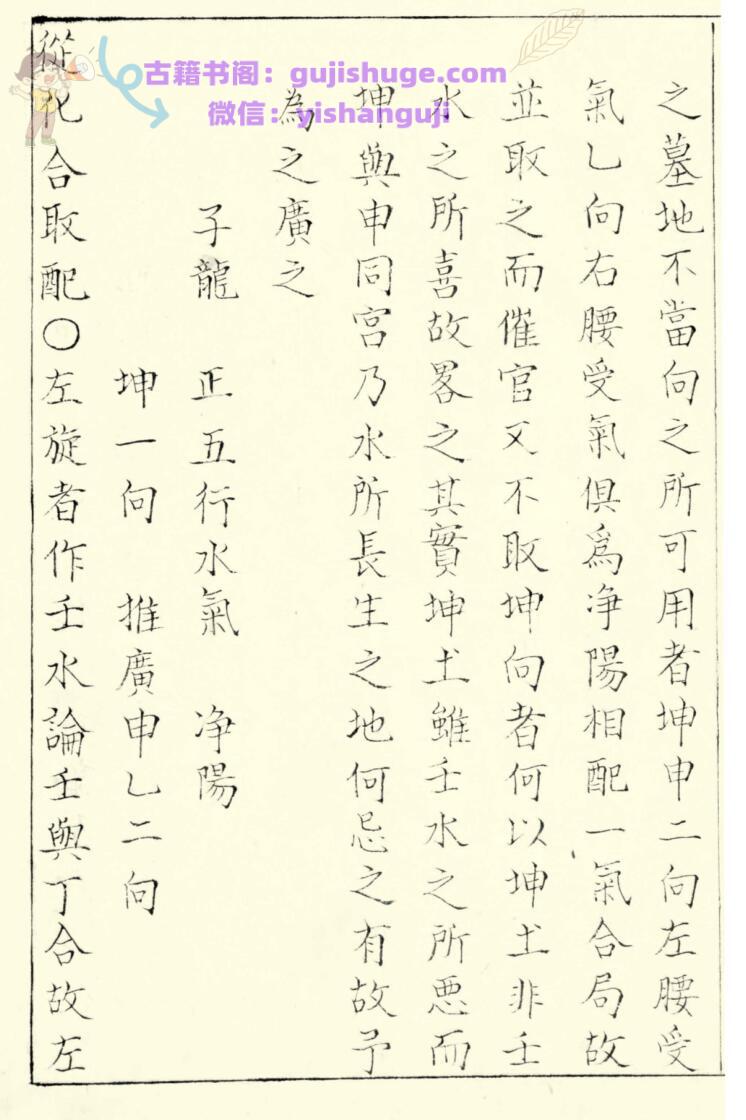 古籍书阁：gujishuge.com
微信：yishanguji
之墓地不當向之所可用者坤申二向左腰受
氣乚向右腰受氣俱爲净陽相配一氣合局故
並取之而催官又不取坤向者何以坤土非壬
水之所喜故畧之其實坤土雖壬水之所悪而
坤與申同宫乃水所長生之地何忌之有故予
為之廣之
子龍　正五行水氣　净陽
坤一向　推廣申乚二向
從化合取配〇左旋者作壬水論壬與丁合故左